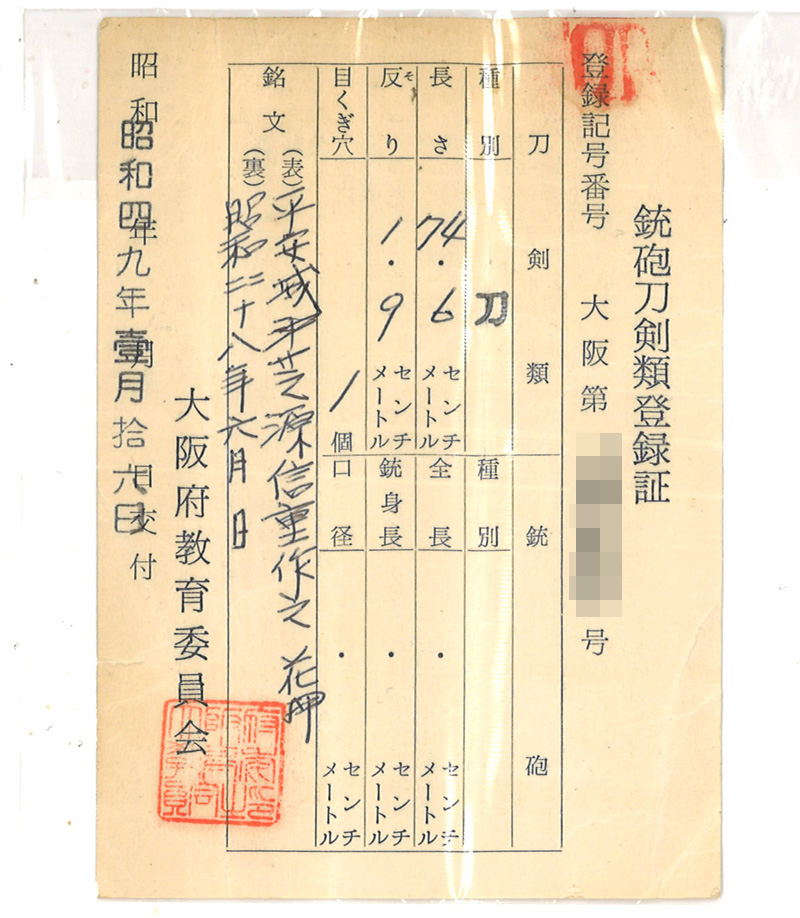 銃砲刀剣類登録証
登録記号番号 大阪第 号
刀剣類 銃砲
種別 刀 種別
長さ 74.6 センチメートル 全長 ・ センチメートル
反り 1.9 センチメートル 銃身長 ・ センチメートル
そ
目くぎ穴 1 個 口径 ・ センチメートル
銘文 (表) 平安城 芝源信重作之 花押
(裏) 昭和二十八年六月 日
昭和 年 月 日交付
昭和四九年壹月拾六日
大阪府教育委員会